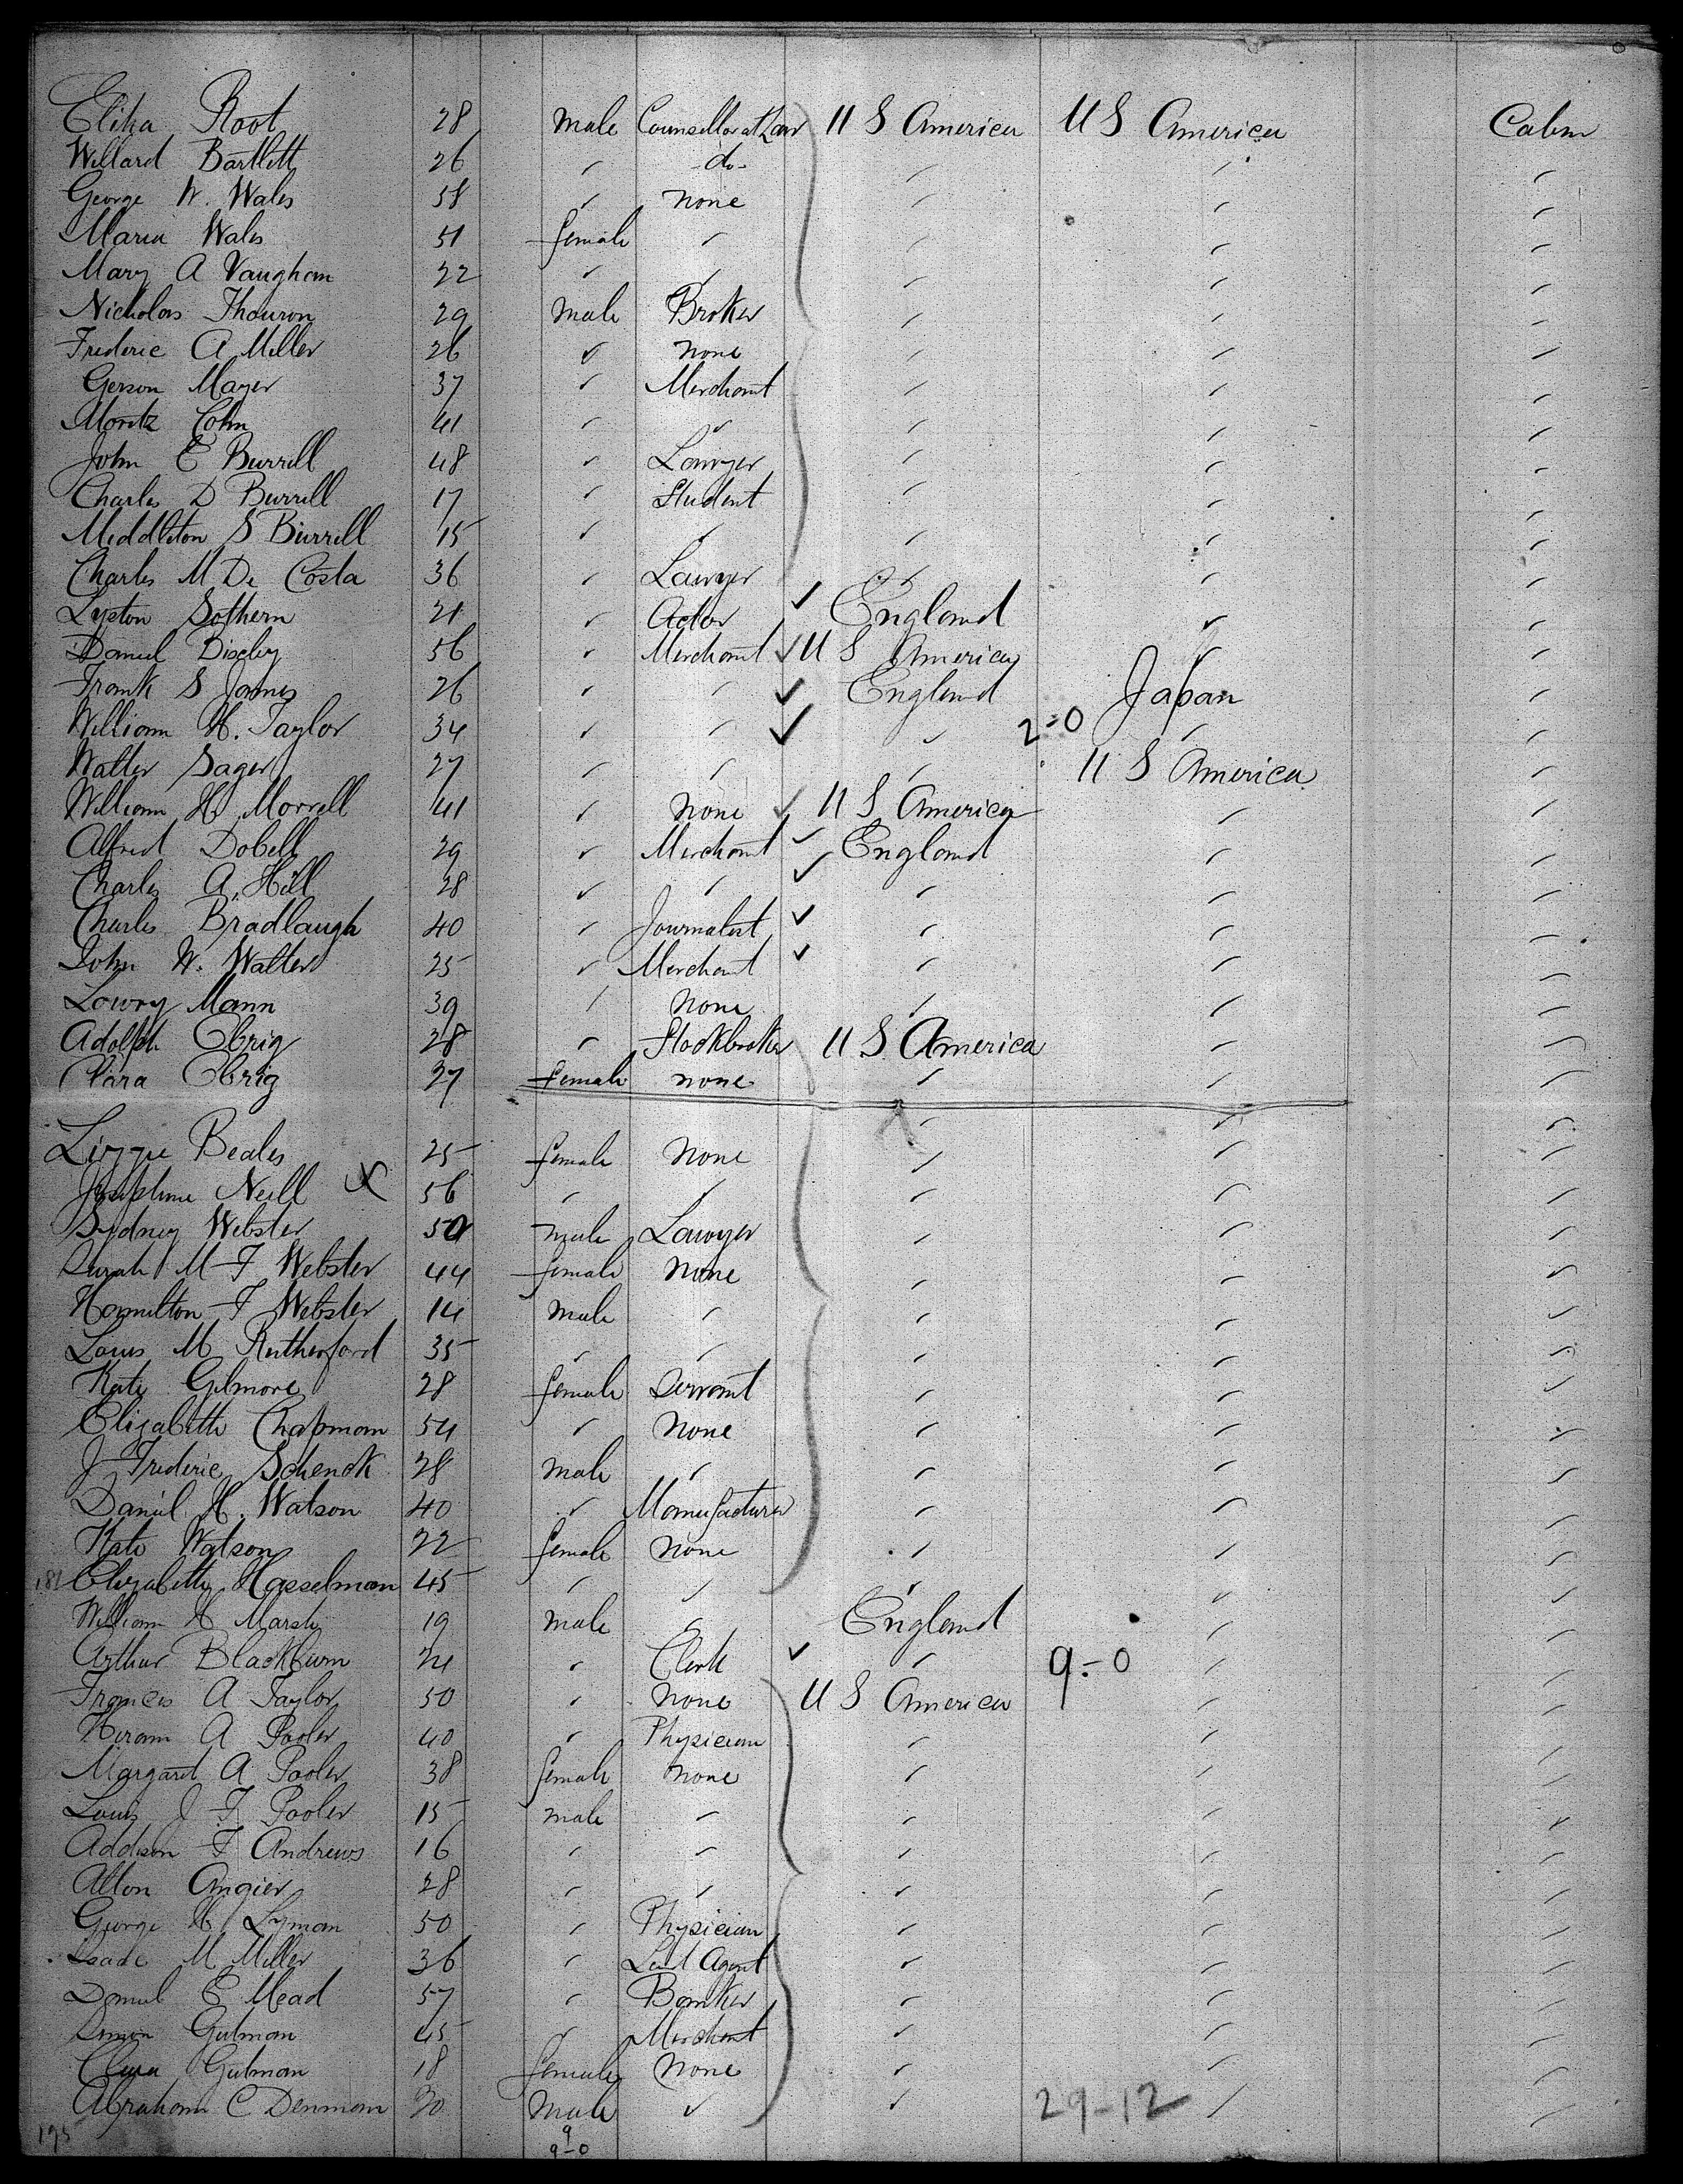 Elihu Root 28 Male Counsellor at Law U S America U S America Cabin
Willard Bartlett 26 " do " " "
George W. Wales 58 " None " " "
Maria Wales 51 female " " " "
Mary A Vaughan 22 " " " " "
Nicholas Thouron 29 Male Broker " " "
Frederic A Miller 26 " None " " "
Gerson Mayer 37 " Merchant " " "
Moritz Cohn 41 " " " " "
John E Burrill 48 " Lawyer " " "
Charles D Burrill 17 " Student " " "
Middleton S Burrill 15 " " " " "
Charles M Da Costa 36 " Lawyer " " "
Lyston Sothern 21 " Actor ✓ England " "
Daniel Bixby 56 " Merchant ✓ U S America " "
Frank S James 26 " " ✓ England Japan "
William H. Taylor 34 " " ✓ " 2-0 " "
Walter Sager 27 " " " U S America "
William H Morrell 41 " None ✓ U S America " "
Alfred Dobell 29 " Merchant ✓ England " "
Charles A. Hill 28 " " ✓ " " "
Charles Bradlaugh 40 " Journalist ✓ " " "
John W. Walters 25 " Merchant ✓ " " "
Lowry Mann 39 " None " " "
Adolph Obrig 28 " Stockbroker U S America " "
Clara Obrig 27 female none " " "
Lizzie Beales 25 female None " " "
Josephine Neill X 56 " " " " "
Sydney Webster 50 male Lawyer " " "
Sarah M F Webster 44 female None " " "
Hamilton F Webster 14 Male " " " "
Louis M Rutherford 35 " " " " "
Kate Gilmore 28 female Servant " " "
Elizabeth Chapman 54 " None " " "
J Frederic Schenck 28 Male " " " "
Daniel H. Watson 40 " Manufacturer " " "
Kate Watson 22 female None " " "
181 Elizabeth Hasselman 45 " " " " "
William H Marsh 19 Male " England " "
Arthur Blackburn 24 " Clerk ✓ " 9-0 " "
Francis A Taylor 50 " None U S America " "
Hiram A Pooler 40 " Physician " " "
Margaret A Pooler 38 female None " " "
Louis J F Pooler 15 male " " " "
Addison F Andrews 16 " " " " "
Alton Angier 28 " " " " "
George H Lyman 50 " Physician " " "
Isaac M Miller 36 " Agent " " "
Daniel E Mead 57 " Banker " " "
Simon Gutman 45 " Merchant " " "
Clara Gutman 18 female None " " "
Abraham C Denman 20 Male " " 29-12 " "
175 9
9-0